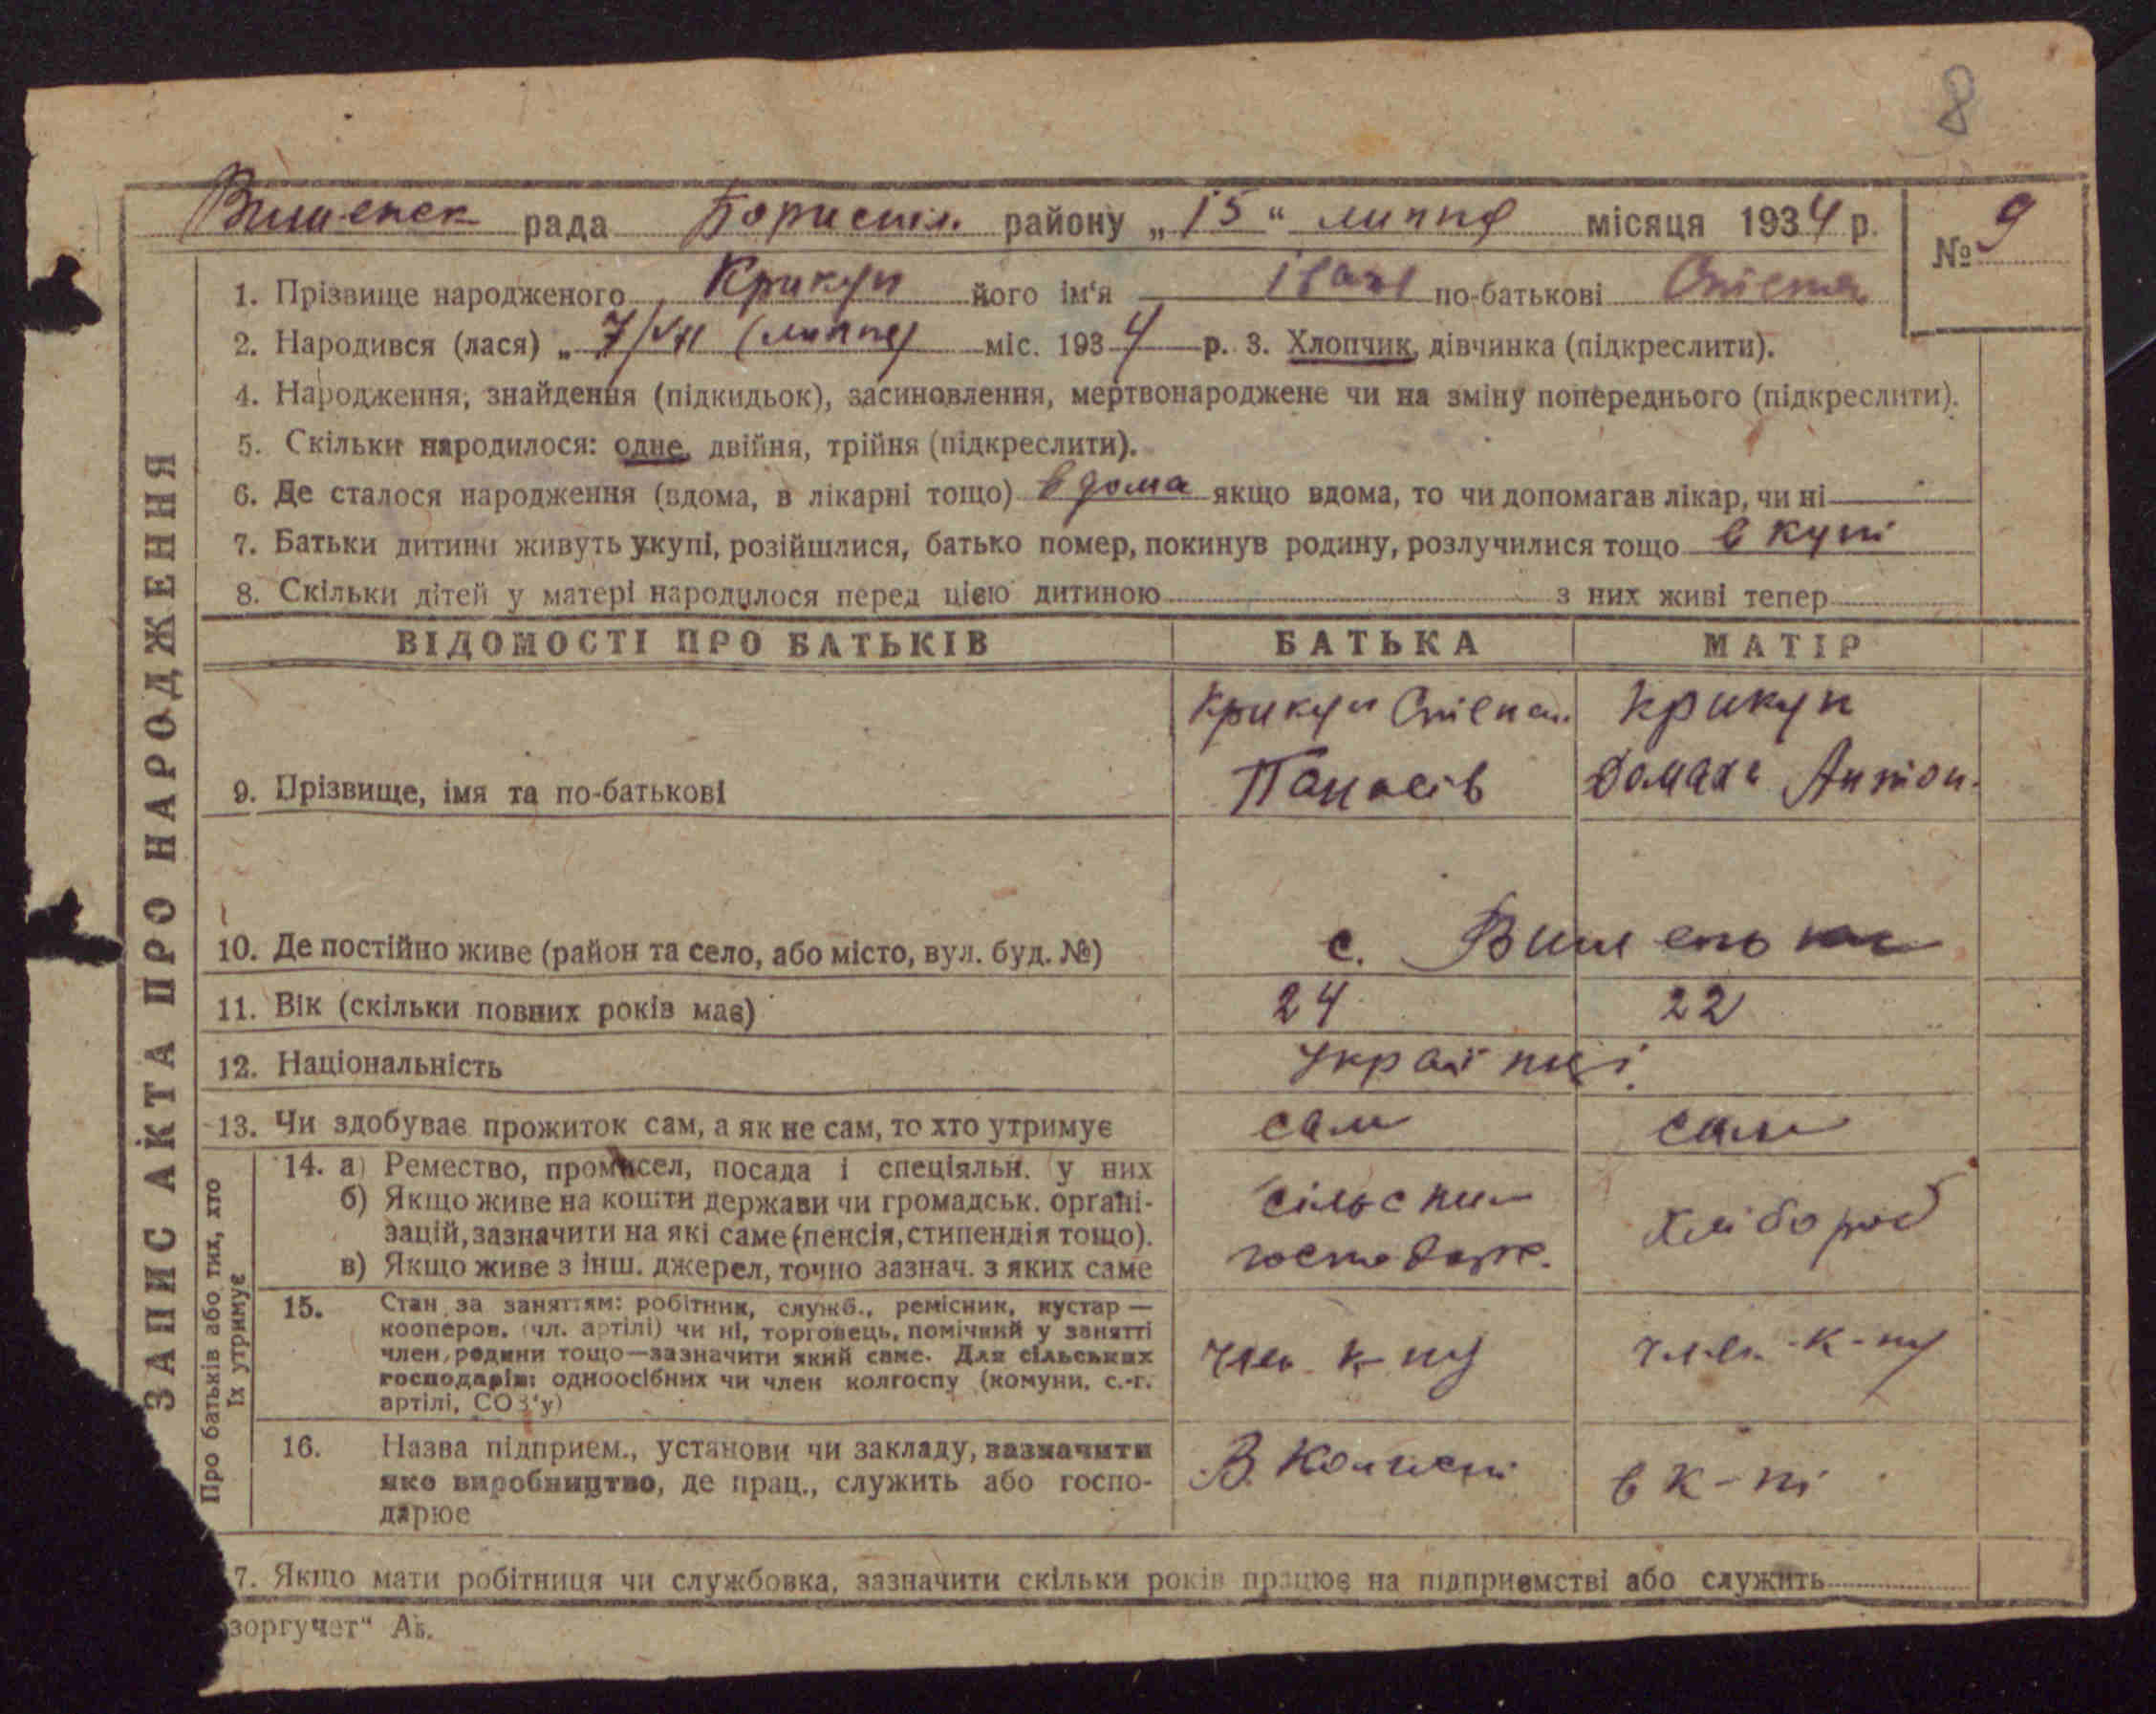 8
Вишенск рада Бориспіл. району „15“ липня місяця 1934 р.
№ 9
1. Прізвище народженого Крикун його ім'я Іван по-батькові Степан.
2. Народився (лася) „ 7/VII (липня) міс. 1934 р. 3. Хлопчик, дівчинка (підкреслити).
4. Народження, знайдення (підкидьок), засиновлення, мертвонароджене чи на зміну попереднього (підкреслити).
5. Скільки народилося: одне, двійня, трійня (підкреслити).
6. Де сталося народження (вдома, в лікарні тощо) вдома якщо вдома, то чи допомагав лікар, чи ні
7. Батьки дитини живуть укупі, розійшлися, батько помер, покинув родину, розлучилися тощо в купі
8. Скільки дітей у матері народилося перед цією дитиною з них живі тепер
ЗАПИС АКТА ПРО НАРОДЖЕННЯ
ВІДОМОСТІ ПРО БАТЬКІВ БАТЬКА МАТІР
Крикун Степан. Крикун
9. Прізвище, імя та по-батькові Панасів Домаха Антон.
10. Де постійно живе (район та село, або місто, вул. буд. №) с. Вишеньки
11. Вік (скільки повних років має) 24 22
12. Національність Українці.
13. Чи здобуває прожиток сам, а як не сам, то хто утримує сам сам
Про батьків або тих, хто
їх утримує
14. а) Ремество, промисел, посада і спеціяльн. у них
б) Якщо живе на кошти держави чи громадськ. органі-
зацій, зазначити на які саме (пенсія, стипендія тощо).
в) Якщо живе з інш. джерел, точно зазнач. з яких саме
господар.
хлібороб
15. Стан за заняттям: робітник, служб., ремісник, кустар —
кооперов. (чл. артілі) чи ні, торговець, помічний у занятті
член родини тощо—зазначити який саме. Для сільських
господарів: одноосібних чи член колгоспу (комуни, с.-г.
артілі, СОЗ'у)
член к-пу член к-пу
16. Назва підприєм., установи чи закладу, зазначити
яке виробництво, де прац., служить або госпо-
дарює
В. Колгоспі в к-пі
7. Якщо мати робітниця чи службовка, зазначити скільки років працює на підприємстві або служить
зоргучет“